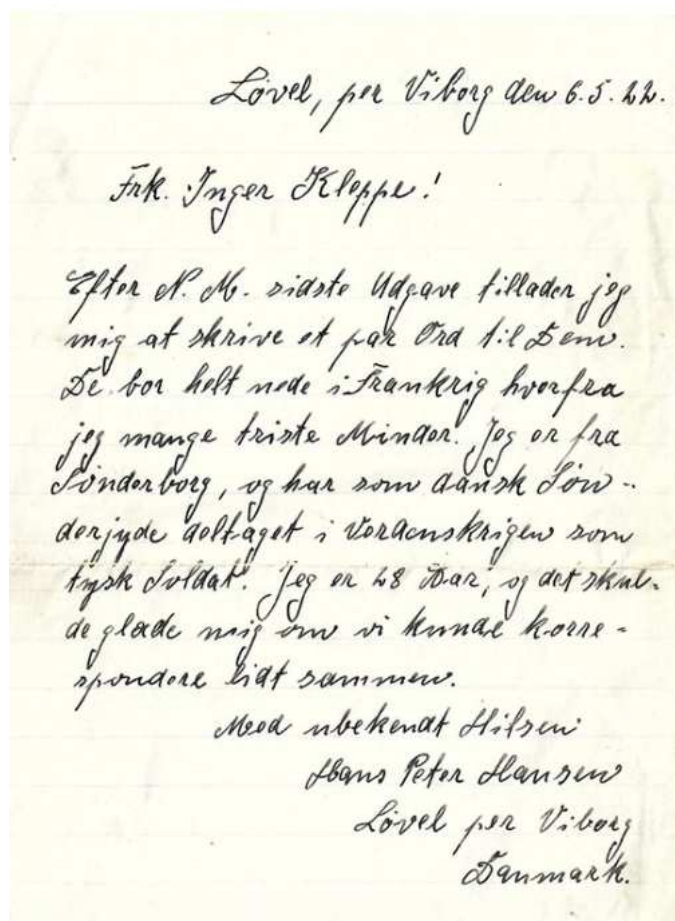 Løvel, per Viborg den 6.5.22.
Frk. Inger Kloppe!
Efter N. M. sidste Udgave tillader jeg
mig at skrive et par Ord til Dem.
De bor helt nede i Frankrig hvorfra
jeg mange triste Minder. Jeg er fra
Sønderborg, og har som dansk Søn-
derjyde deltaget i Verdenskrigen som
tysk Soldat. Jeg er 28 Aar, og det skul-
de glæde mig om vi kunde korre-
spondere lidt sammen.
Med ubekendt Hilsen
Hans Peter Hansen
Løvel per Viborg
Danmark.